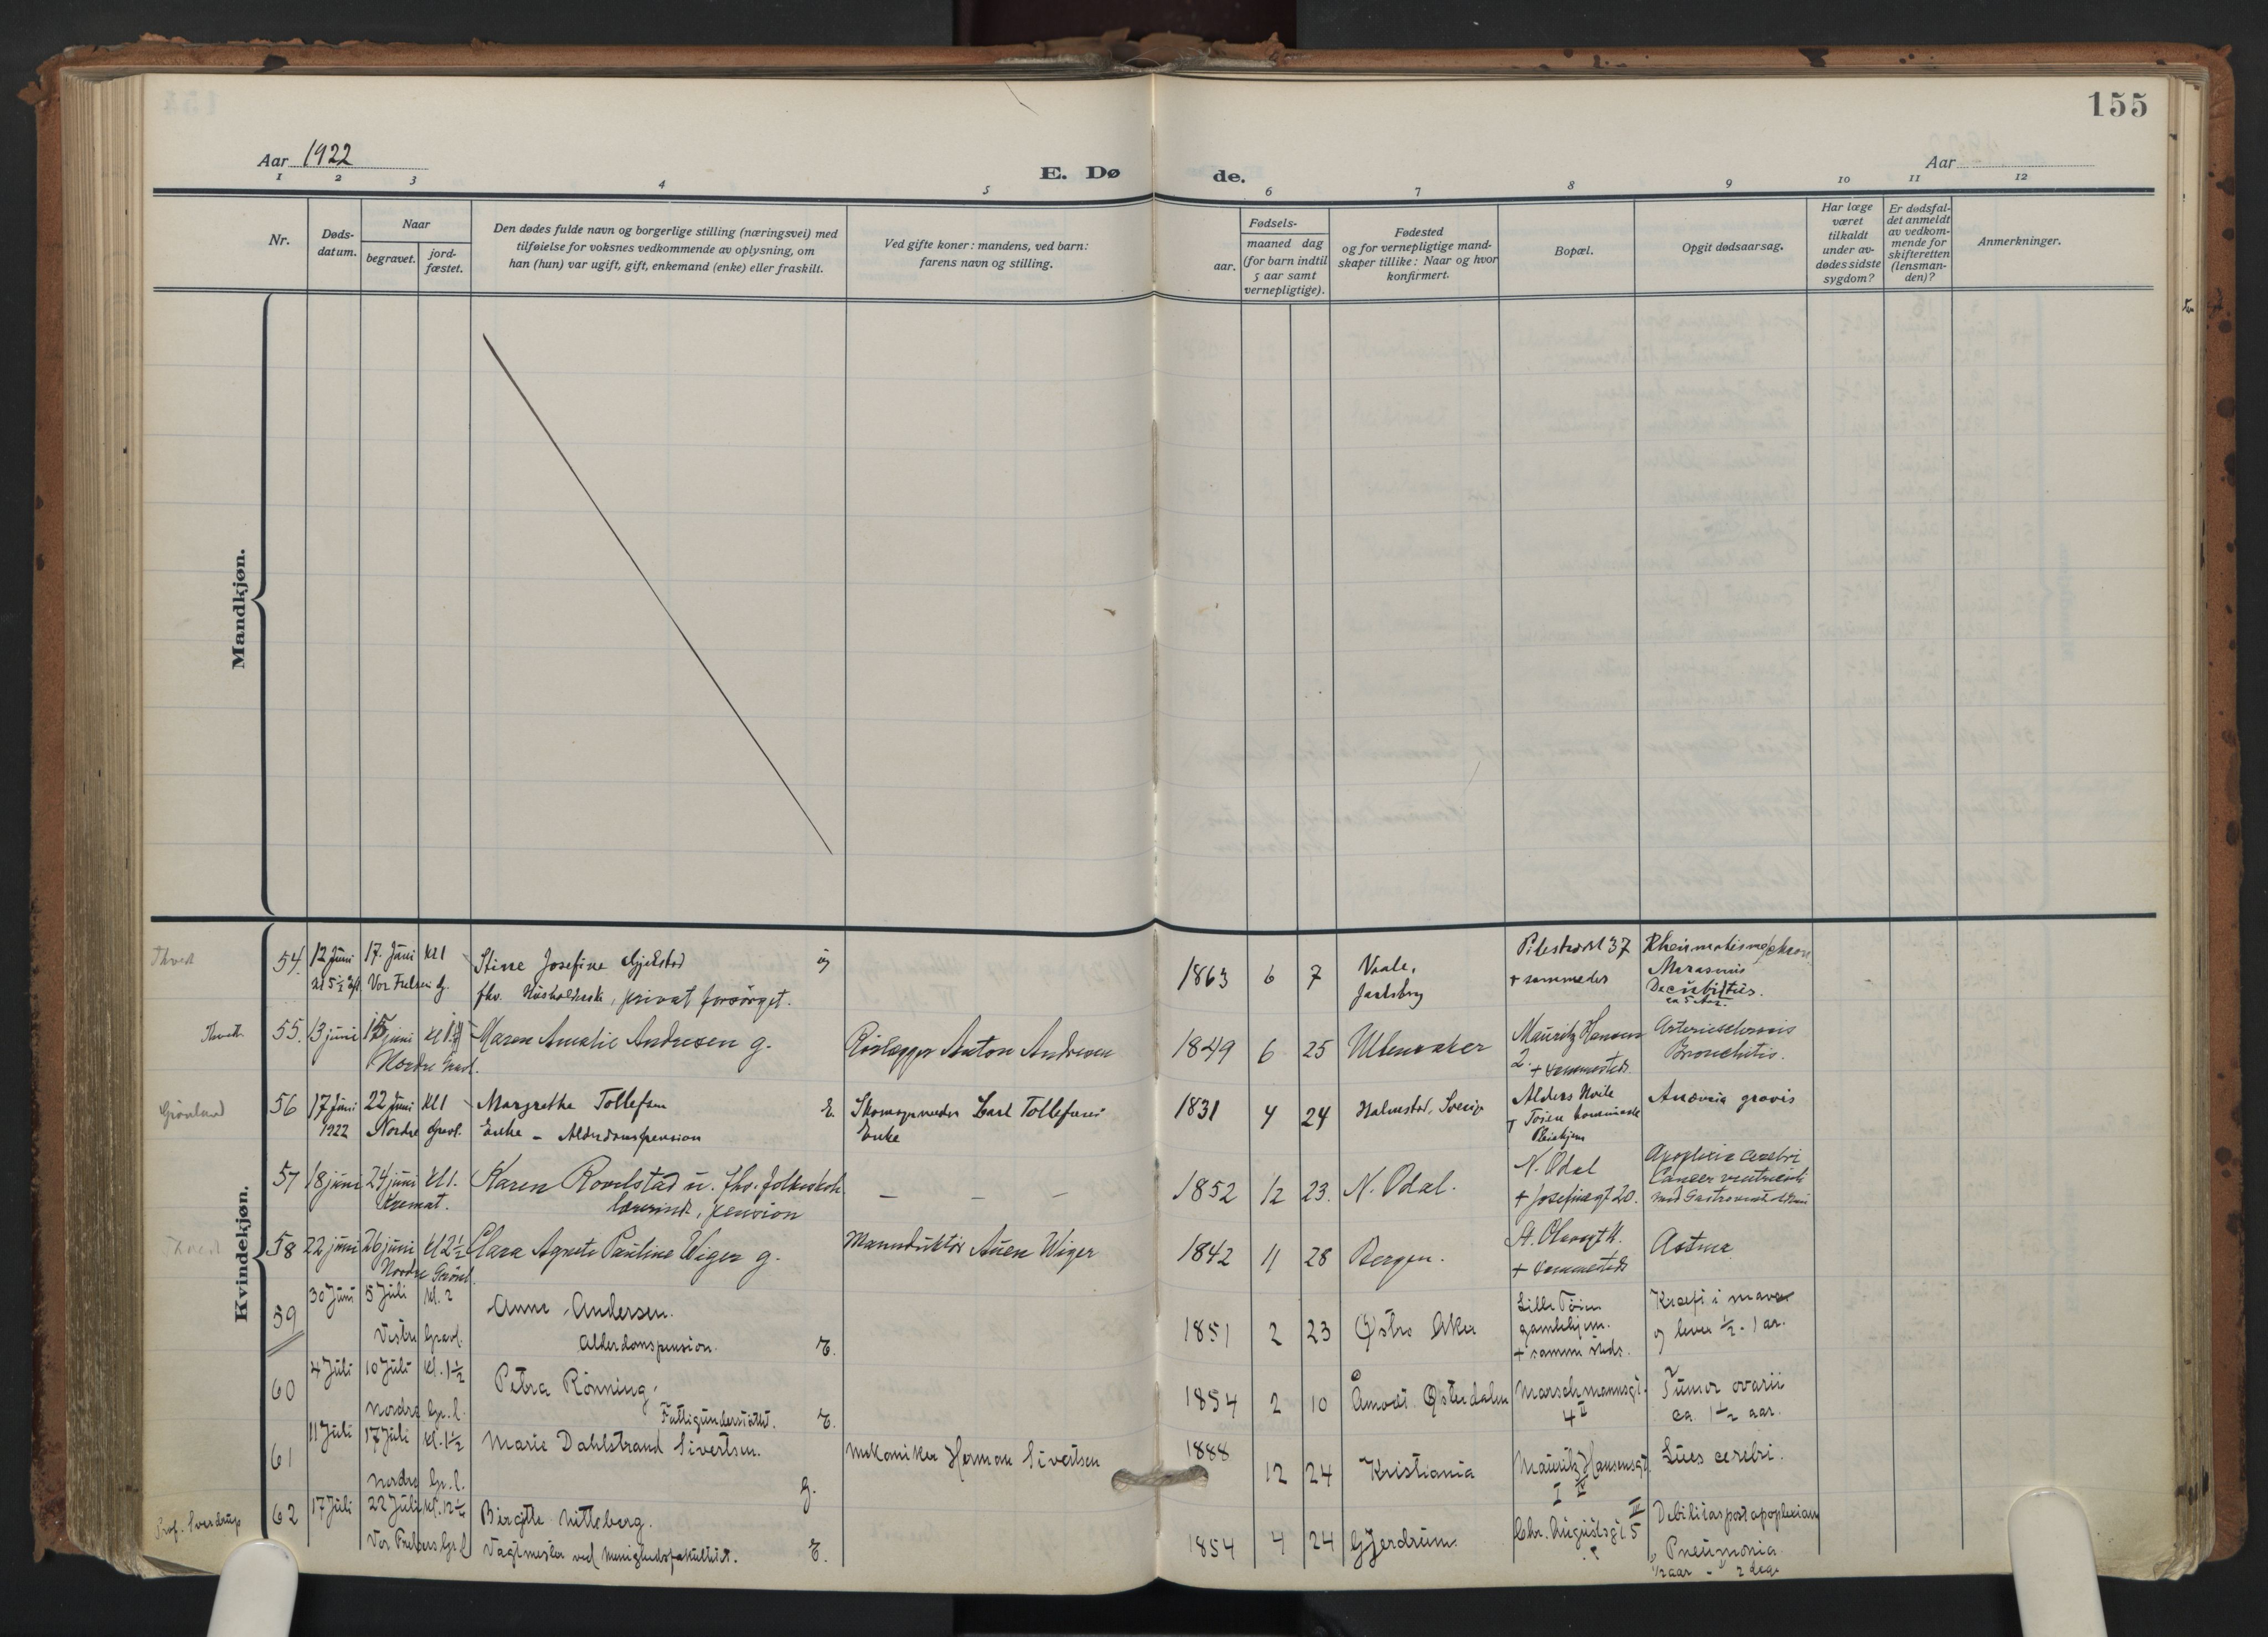 155
Aar 1922
E. Dø
de.
Aar
1 2 3 4 5 6 7 8 9 10 11 12
Nr.
Døds-
datum.
Naar
begravet.
jord-
fæstet.
Den dødes fulde navn og borgerlige stilling (næringsvei) med
tilføielse for voksnes vedkommende av oplysning, om
han (hun) var ugift, gift, enkemand (enke) eller fraskilt.
Ved gifte koner: mandens, ved barn:
farens navn og stilling.
Fødsels-
aar.
maaned dag
(for barn indtil
5 aar samt
vernepligtige).
Fødested
og for vernepligtige mand-
skaper tillike: Naar og hvor
konfirmert.
Bopæl.
Opgit dødsaarsag.
Har læge
været
tilkaldt
under av-
dødes sidste
sygdom?
Er dødsfal-
det anmeldt
av vedkom-
mende for
skifteretten
(lensman-
den)?
Anmerkninger.
Mandkjøn.
Kvindekjøn.
54. 12 Juni 17. Juni Kl 1 Stine Josefine 1863 6 7 Vaale, Pilestrædet 37
Vor Frelsers g. fhv. Husholderske, privat forsørget. Jarlsberg + sammesteds Marasmus
Decubitus.
55. 13 juni 15 juni Maren Amalie Andresen g. Rørlægger Anton Andresen 1849 6 25 Ullensaker Mauritz Hansens Arteriosclerosis
Nordre Gravl. 2. + sammesteds. Bronchitis.
Grønland 56 17 juni 22 juni Kl 1 Margrethe Tollefsen E. Skomagermester Carl Tollefsens 1831 4 24 Halmstad, Sverige Alders Hvile Anæmia gravis
1922 Nordre Gravl. Enke - Alderdomspension Enke + Tøien kommunale
Pleiehjem
57 18 juni 24 juni Kl 1. Karen Rovelstad u. fhv. folkeskole — — — 1852 12 23. N. Odal. N. Odal Apoplexia cerebri
Kremat. lærerinde, pension + Josefinegt 20. Cancer ventriculi
58 22 juni 26 juni Kl 2½ Clara Agnete Pauline Wiger g. Wiger 1842 11 28 Bergen. St. Olavsgt Astma
Nordre Gravl. + sammesteds
59 30 Juni 5 Juli Kl. 2 Anna Andersen. 1851 2 23 Østre Aker Lille Tøien Kræft i maven
Vestre Gravl. Alderdomspension. E. gamlehjem. og lever ½ - 1 aar.
+ samme steds.
60 4 Juli 10 Juli Kl. 1½ Petra Rönning, 1854 2 10 Åmodt Østerdalen Marschmannsgt. Tumor ovarii
Nordre Gr. l. Fattigunderstöttet. E. 4 II ca. 1½ aar.
61 11 Juli 17 Juli Kl. 1½ Marie Dahlstrand Sivertsen. Mekaniker Herman Sivertsen 1888 12 24 Kristiania Mauritz Hansensgt. Lues cerebri.
Nordre Gr. l. g.
Prof. Sverdrup 62 17 Juli 22 Juli Birgitte Nitteberg. 1854 4 24 Gjerdrum. Chr. Augustsgt 5 II Debilitas post apoplexiam
Vor Frelsers Gr. l Vagtmester ved Menighedsfakultetet. E. Pneumonia.
½ aar - 2 dage